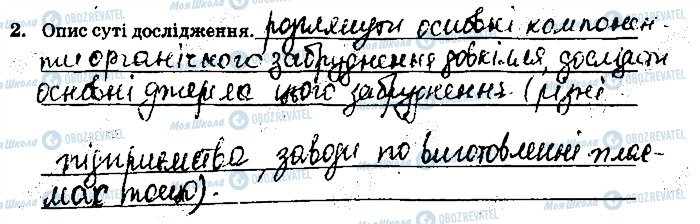 2. Опис суті дослідження. розглянути основні компонен-
ти органічного забруднення довкілля, дослідити
основні джерела цього забруднення (різні
підприємства, заводи по виготовленні плас-
мас тощо).